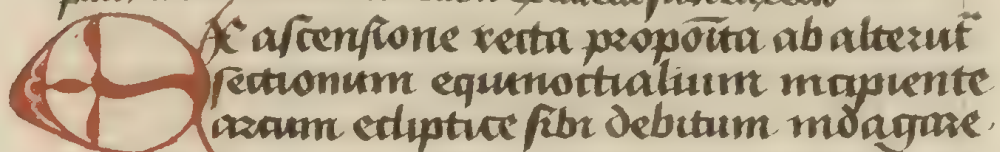 EX ascensione recta propoita ab alterut
sectionum equinoctialium incipiente
arcum ecliptice sibi debitum indagare.